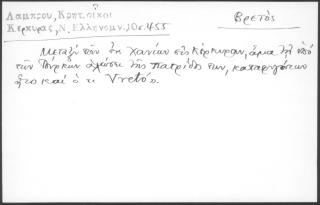 Λαμπρου, Κρητ. οἶκοι
Κερκυρας, Ν. Ελληνομν. 10 σ. 455
Βρετὸς
Μεταξὺ τῶν ἐκ Χανίων εἰς Κέρκυραν, ἅμα τῇ ὑπὸ
τῶν Τούρκων ἁλώσει τῆς πατρίδος των, καταφυγόντων
ἦτο καὶ ὁ κ. Vretó».